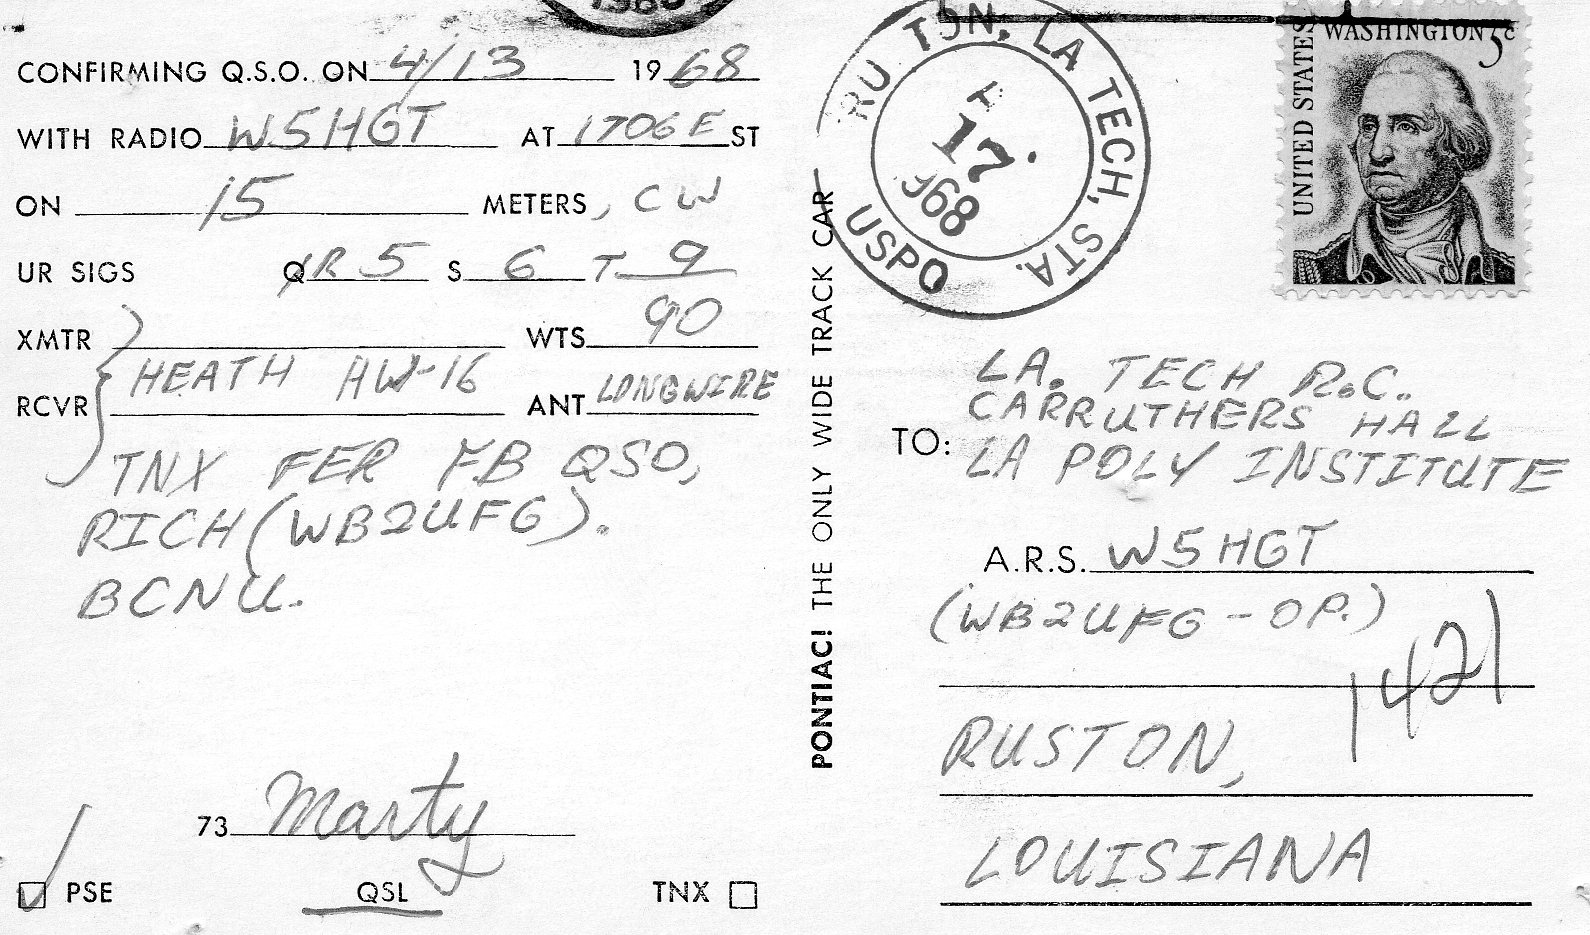 1980
CONFIRMING Q.S.O. ON 4/13 1968
WITH RADIO W5HGT AT 1706 E ST
ON 15 METERS, CW
UR SIGS QR 5 S 6 T 9
XMTR WTS 90
HEATH HW-16
RCVR ANT LONGWIRE
TNX FER FB QSO,
RICH (WB2UFG).
BCNU.
73 Marty
PSE QSL TNX
PONTIAC! THE ONLY WIDE TRACK CAR
RUSTON, LA TECH, STA.
17
1968
USPO
UNITED STATES
WASHINGTON 5c
LA. TECH R.C.
CARRUTHERS HALL
TO: LA POLY INSTITUTE
A.R.S. W5HGT
(WB2UFG - OP.)
1421
RUSTON,
LOUISIANA